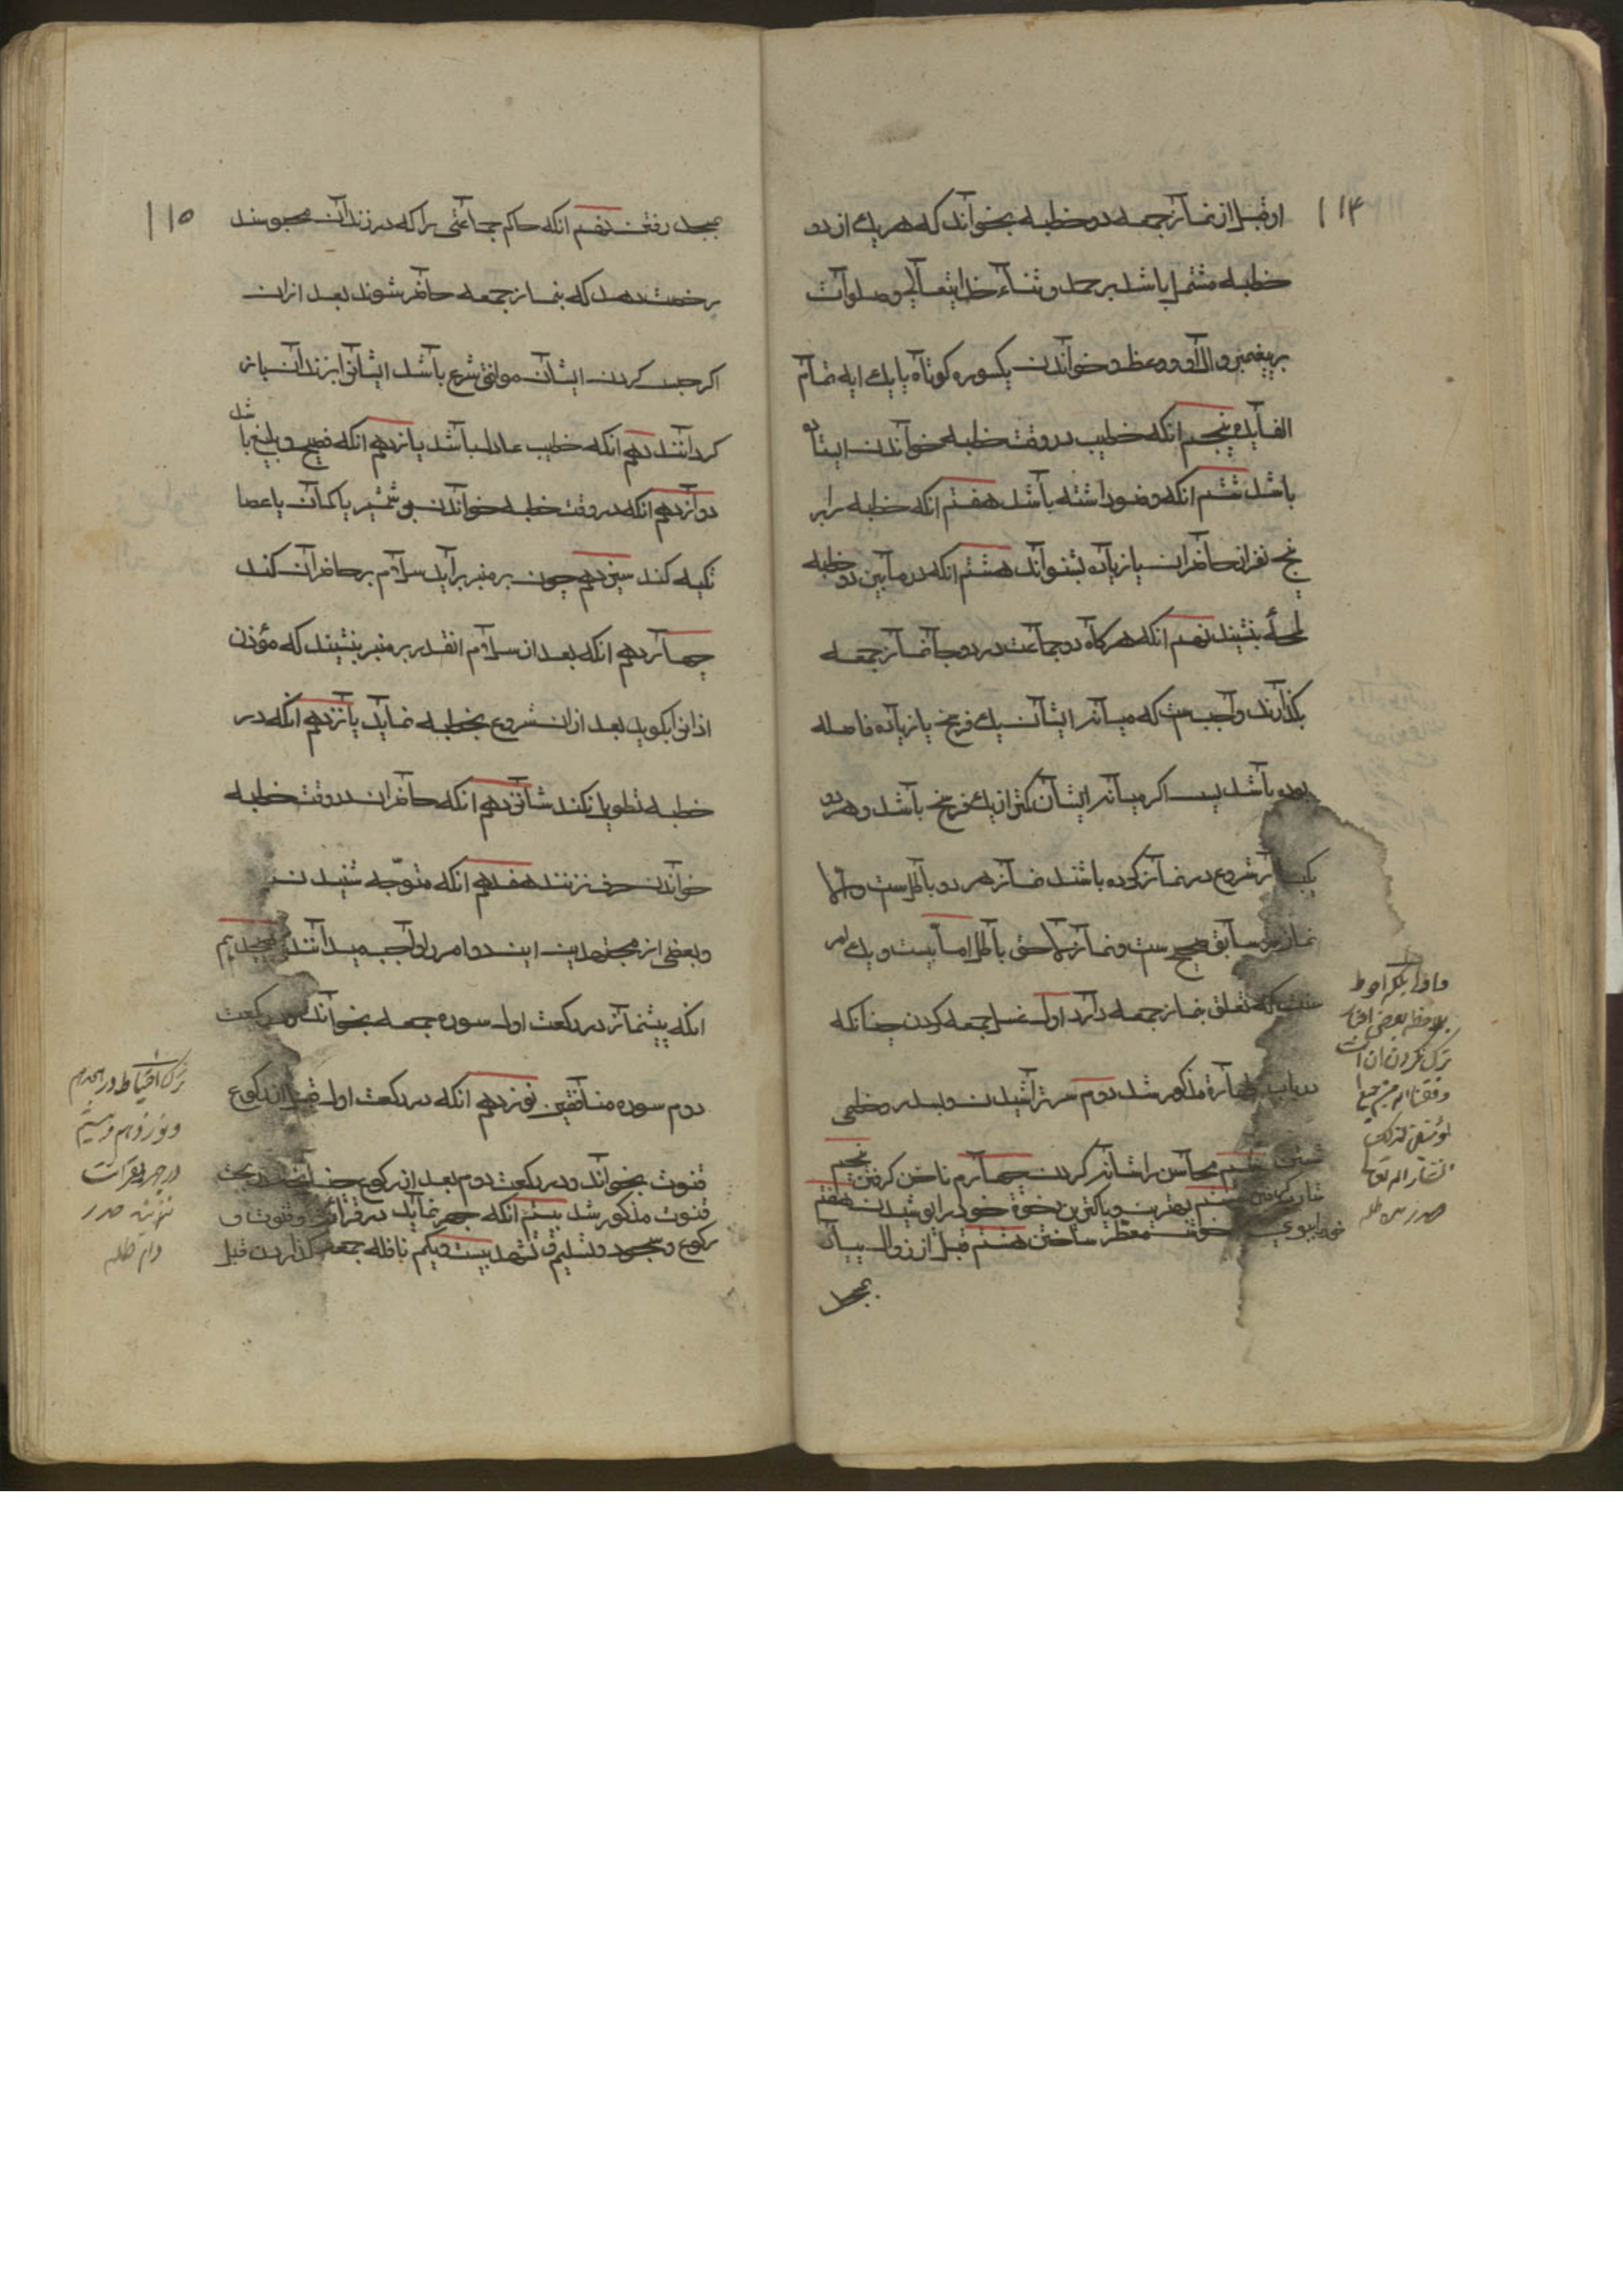 ۱۱۴
او قبل از نماز جمعه دو خطبه بخواند که هر یک از دو
خطبه مشتمل باشد بر حمد و ثناء خدایتعالی و صلوات
بر پیغمبر و آل او و وعظ و خواندن یکسوره کوتاه یا یک ایه تمام
الفایده پنجم انکه خطیب در وقت خطبه خواندن ایستاده
باشد ششم انکه وضو داشته باشد هفتم انکه خطبه را بر
پنج نفر از حاضران یا زیاده بشنواند هشتم انکه در مابین دو خطبه
لحظهٔ بنشیند نهم انکه هرگاه دو جماعت در دو جا نماز جمعه
بکذارند واجبست که میانه ایشان یک فرسخ یا زیاده فاصله
بوده باشد پس اکر میانه ایشان کمتر از یک فرسخ باشد و هر دو
شروع در نماز کرده باشند نماز هر دو باطلست والا
نماز سابق صحیح ست و نماز لاحق باطل اما بیست و یک امر
سنت که تعلق بنماز جمعه دارد اول غسل جمعه کردن چنانکه
در باب طهارة مذکور شد دوم سر تراشیدن و بسدر و خطمی
شستن سیم محاسن را شانه کردن چهارم ناخن کرفتن پنجم
شارب کرفتن ششم بهترین و پاکترین رخوة خود را پوشیدن هفتم
خود را ببوی خوش معطر ساختن هشتم قبل از زوال بپیاده
بمسجد
بلاحظه بعضی
ترک نکردن ان است
انشاء الله تعالی
صدر مد ظله
۱۱۵
بمسجد رفتن نهم انکه حاکم جماعتی را که در زندان محبوسند
رخصت دهد که بنماز جمعه حاضر شوند بعد ازان
اکر حبس کردن ایشان موافق شرع باشد ایشانرا بزندان باز
کردانند دهم انکه خطیب عادل باشد یازدهم انکه فصیح و بلیغ باشد
دوازدهم انکه در وقت خطبه خواندن بر شمشیر یا کمان یا عصا
تکیه کند سیزدهم چون بر منبر براید سلام بر حاضران کند
چهاردهم انکه بعد از سلام انقدر بر منبر بنشیند که مؤذن
اذانرا بکوید بعد ازان شروع بخطبه نماید پانزدهم انکه در
خطبه تطویل نکند شانزدهم انکه حاضران در وقت خطبه
خواندن حرف نزنند هفدهم انکه متوجه شنیدن
و بعضی از مجتهدین ایندو امر را واجب میدانند هیجدهم
انکه پیشنماز در رکعت اول سوره جمعه بخواند و در رکعت
دوم سوره منافقین نوزدهم انکه در رکعت اول قبل از رکوع
قنوت بخواند و در رکعت دوم بعد از رکوع چنانچه در بحث
قنوت مذکور شد بیستم انکه جهر نماید در قرائت و قنوت و
رکوع و سجود و تشهد و تسلیم بیست و یکم نافله جمعه کذاردن قبل
ترک احتیاط در هجدهم
و نوزدهم و بیستم
در جهر بقرائت
صدر
دام ظله